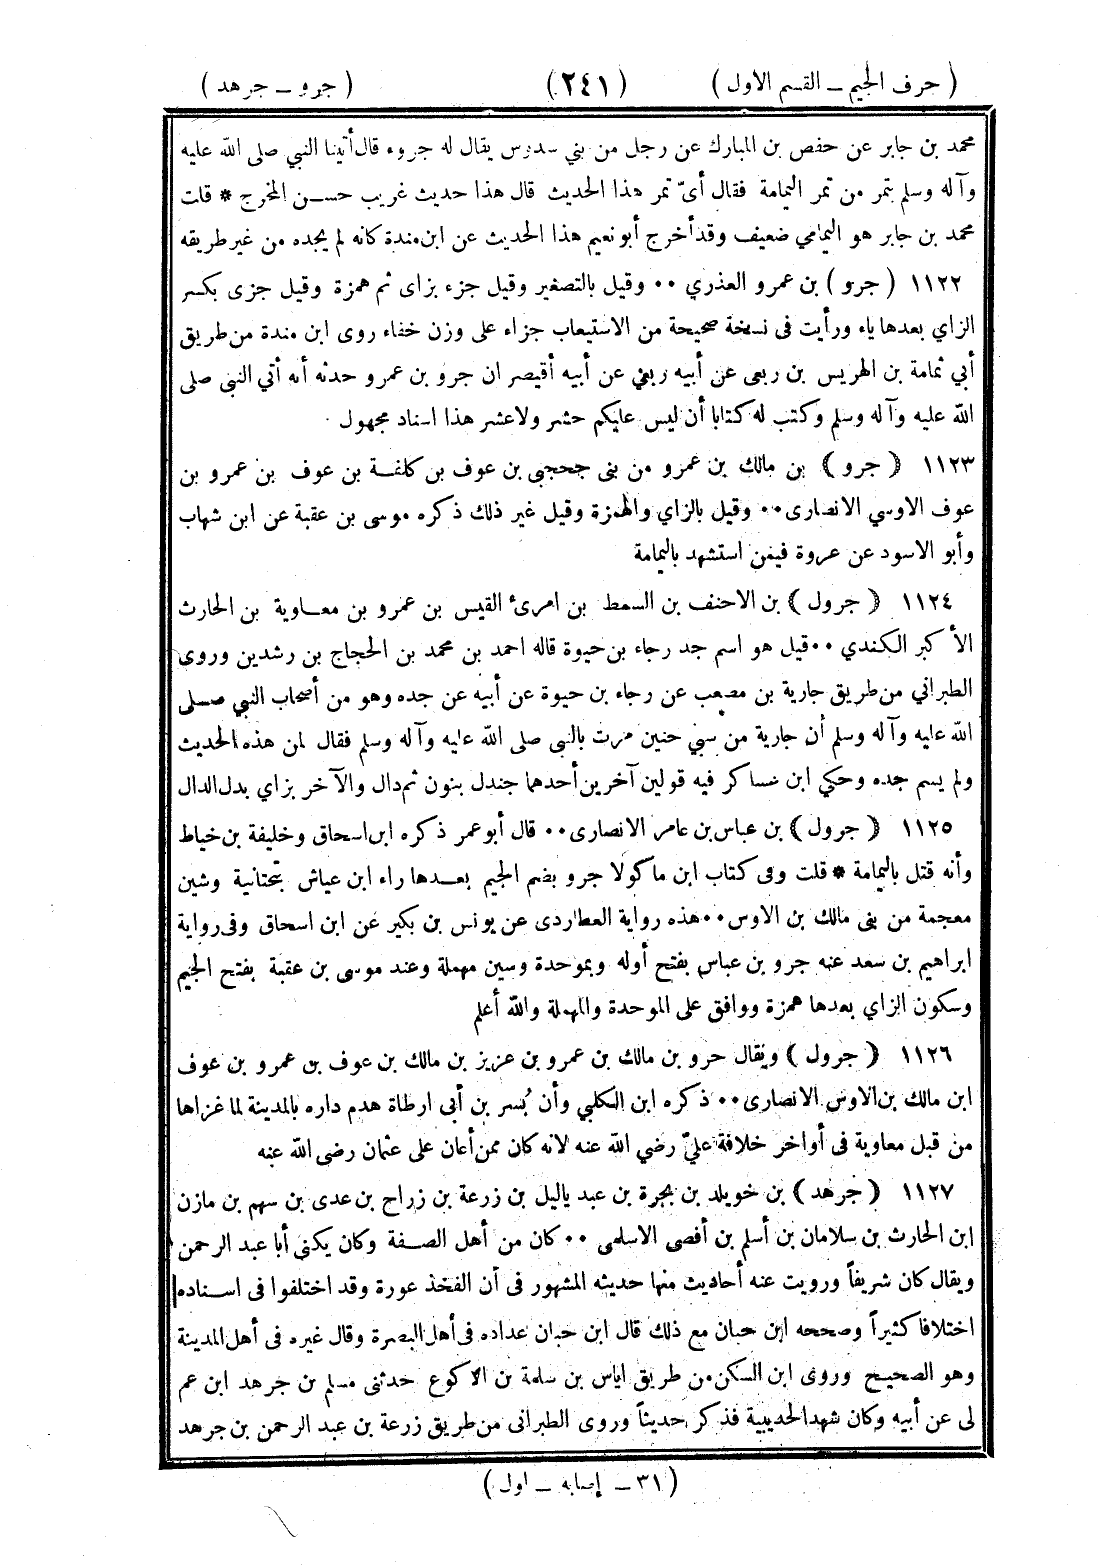 ( حرف الجيم ـ القسم الاول ) ( ٢٤١ ) ( جرو ـ جرهد )
محمد بن جابر عن حفص بن المبارك عن رجل من بني سدرس يقال له جروء قال أتينا النبي صلى الله عليه
وآله وسلم بتمر من تمر اليمامة فقال أىّ تمر هذا الحديث قال هذا حديث غريب حسن المخرج * قلت
محمد بن جابر هو اليمامي ضعيف وقد أخرج أبو نعيم هذا الحديث عن ابن مندة كانه لم يجده من غير طريقه
١١٢٢ ( جرو ) بن عمرو العذري ٠٠ وقيل بالتصغير وقيل جزء بزاى ثم همزة وقيل جزى بكسر
الزاي بعدها ياء ورأيت فى نسخة صحيحة من الاستيعاب جزاء على وزن خفاء روى ابن مندة من طريق
أبي ثمامة بن الهريس بن ربعى عن أبيه ربعي عن أبيه أقيصر ان جرو بن عمرو حدثه أنه أتي النبى صلى
الله عليه وآله وسلم وكتب له كتابا أن ليس عليكم حشر ولا عشر هذا اسناد مجهول
١١٢٣ ( جرو ) بن مالك بن عمرو من بنى جحجبى بن عوف بن كلفة بن عوف بن عمرو بن
عوف الاوسي الانصارى ٠٠ وقيل بالزاي والهمزة وقيل غير ذلك ذكره موسى بن عقبة عن ابن شهاب
وأبو الاسود عن عروة فيمن استشهد باليمامة
١١٢٤ ( جرول ) بن الاحنف بن السمط بن امرئ القيس بن عمرو بن معاوية بن الحارث
الأكبر الكندي ٠٠ قيل هو اسم جد رجاء بن حيوة قاله احمد بن محمد بن الحجاج بن رشدين وروى
الطبراني من طريق جارية بن مصعب عن رجاء بن حيوة عن أبيه عن جده وهو من أصحاب النبي صلى
الله عليه وآله وسلم أن جارية من سبي حنين مرت بالنبى صلى الله عليه وآله وسلم فقال لمن هذه الحديث
ولم يسم جده وحكي ابن عساكر فيه قولين آخرين أحدهما جندل بنون ثم دال والآخر بزاي بدل الدال
١١٢٥ ( جرول ) بن عباس بن عامر الانصارى ٠٠ قال أبو عمر ذكره ابن اسحاق وخليفة بن خياط
وأنه قتل باليمامة * قلت وفى كتاب ابن ماكولا جرو بضم الجيم بعدها راء ابن عياش بتحتانية وشين
معجمة من بنى مالك بن الاوس ٠٠ هذه رواية العطاردى عن يونس بن بكير عن ابن اسحاق وفى رواية
ابراهيم بن سعد عنه جرو بن عباس بفتح أوله وبموحدة وسين مهملة وعند موسى بن عقبة بفتح الجيم
وسكون الزاي بعدها همزة ووافق على الموحدة والمهملة والله أعلم
١١٢٦ ( جرول ) ويقال حرو بن مالك بن عمرو بن عزيز بن مالك بن عوف بن عمرو بن عوف
ابن مالك بن الاوس الانصارى ٠٠ ذكره ابن الكلبي وأن بُسر بن أبى ارطاة هدم داره بالمدينة لما غزاها
من قبل معاوية فى أواخر خلافة عليّ رضي الله عنه لانه كان ممن أعان على عثمان رضى الله عنه
١١٢٧ ( جرهد ) بن خويلد بن بجرة بن عبد ياليل بن زرعة بن زراح بن عدى بن سهم بن مازن
ابن الحارث بن سلامان بن أسلم بن أفصى الاسلمى ٠٠ كان من أهل الصفة وكان يكنى أبا عبد الرحمن
ويقال كان شريفاً ورويت عنه أحاديث منها حديثه المشهور فى أن الفخذ عورة وقد اختلفوا فى اسناده
اختلافا كثيراً وصححه ابن حبان مع ذلك قال ابن حبان عداده فى أهل البصرة وقال غيره فى أهل المدينة
وهو الصحيح وروى ابن السكن من طريق اياس بن سلمة بن الاكوع حدثنى مسلم بن جرهد ابن عم
لى عن أبيه وكان شهد الحديبية فذكر حديثاً وروى الطبرانى من طريق زرعة بن عبد الرحمن بن جرهد
( ٣١ ـ إصابه ـ اول )